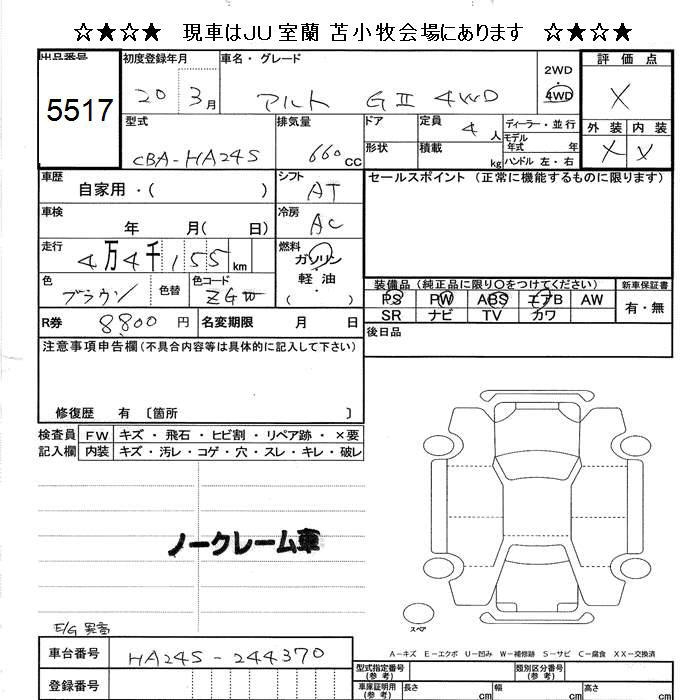 ☆★☆★ 現車はJU室蘭 苫小牧会場にあります ☆★☆★
出品番号 初度登録年月 車名・グレード 評価点
5517 20 3月 アルト GⅡ 4WD 2WD・4WD X
型式 排気量 ドア 定員 4人 ディーラー・並行 外装 内装
CBA-HA24S 660cc 形状 積載 kg モデル年式 年 X X
ハンドル 左・右
車歴 自家用・( ) シフト AT セールスポイント(正常に機能するものに限ります)
車検 年 月( 日) 冷房 AC
走行 4万4千155km 燃料 ガソリン
軽油
( )
色 ブラウン 色替 色コード ZGW 装備品(純正品に限り○をつけてください) 新車保証書
PS PW ABS エアB AW 有・無
SR ナビ TV カワ
R券 8,800円 名変期限 月 日 後日品
注意事項申告欄(不具合内容等は具体的に記入して下さい)
修復歴 有 〔箇所 〕
検査員 FW キズ・飛石・ヒビ割・リペア跡・×要
記入欄 内装 キズ・汚レ・コゲ・穴・スレ・キレ・破レ
ノークレーム車
スペア
E/G 異音
A-キズ E-エクボ U-凹み W-補修跡 S-サビ C-腐食 XX-交換済
車台番号 HA24S-244370
型式指定番号(参考) 類別区分番号(参考)
登録番号 車庫証明用(参考) 長さ cm 幅 cm 高さ cm